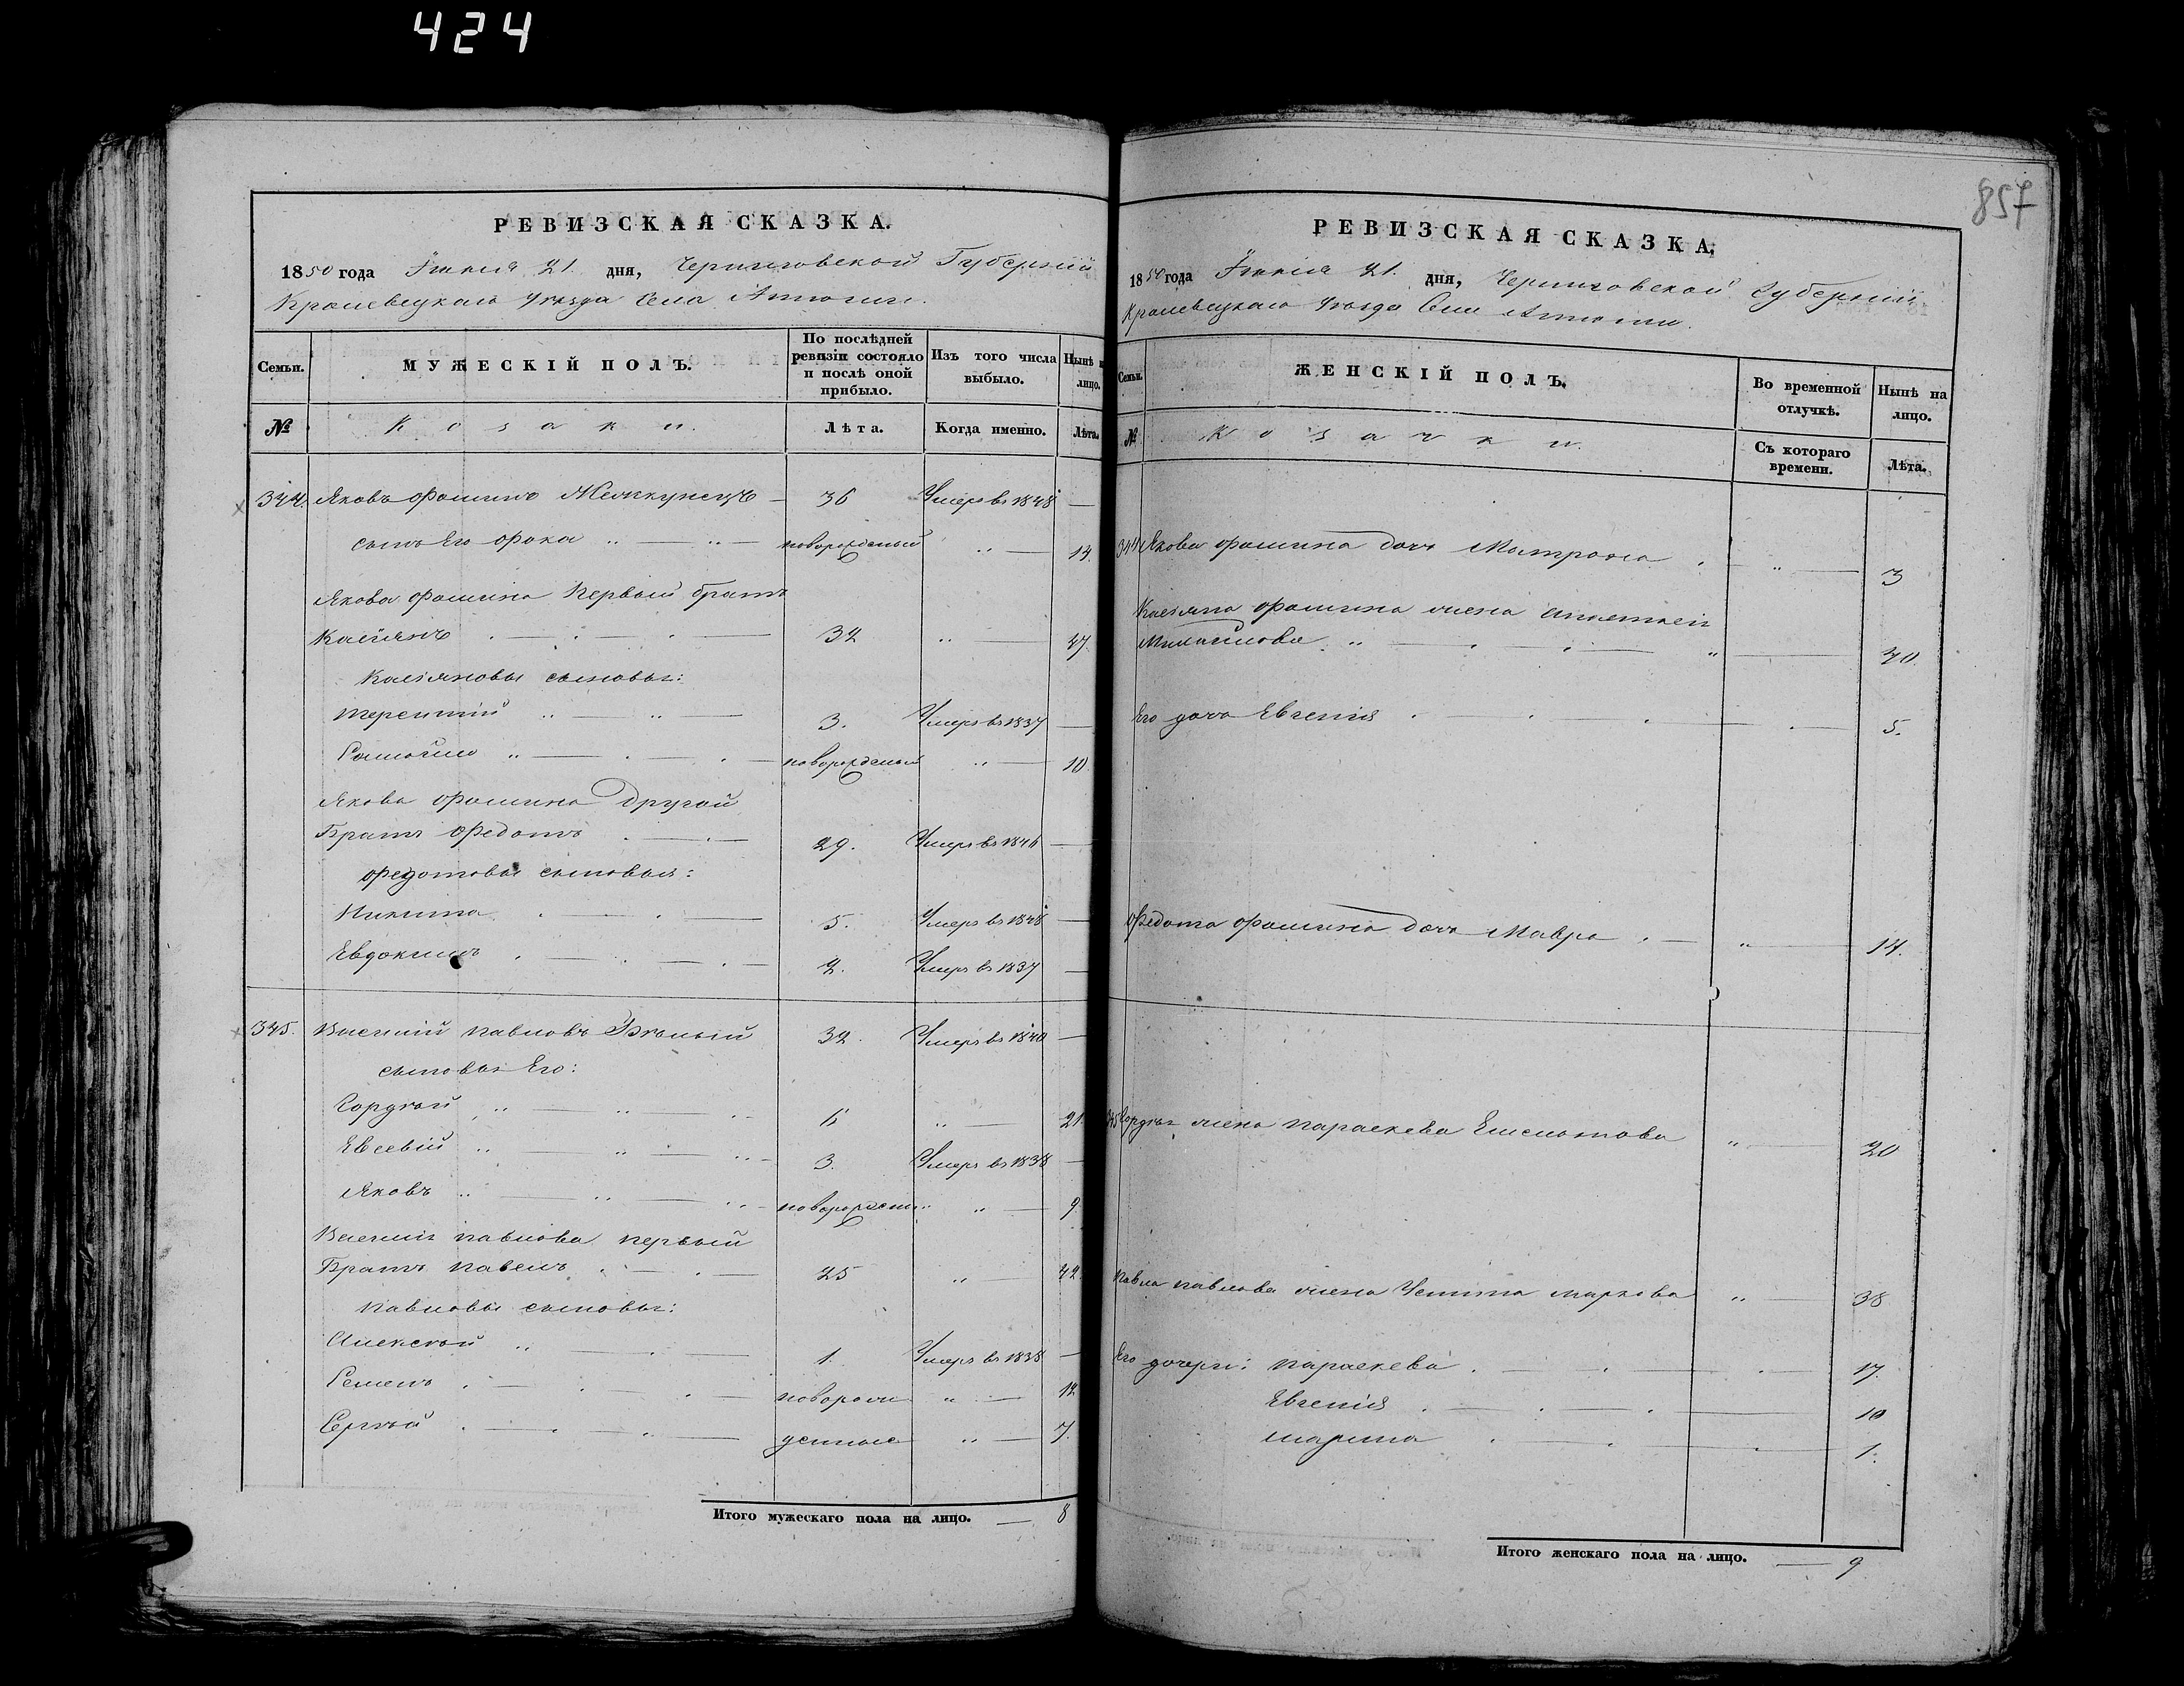 424
857
РЕВИЗСКАЯ СКАЗКА.
1850 года Іюнія 21 дня, Черниговской Губерніи
Кролевецкаго Уѣзда Села
Семьи. МУЖЕСКІЙ ПОЛЪ. По послѣдней ревизіи состояло и послѣ оной прибыло. Изъ того числа выбыло. Нынѣ на лицо.
№ Козаки. Лѣта. Когда именно. Лѣта.
344. Яковъ Фоминъ — 36 Умеръ въ 1848 —
сынъ Его Фока новорожденый 14.
Якова Фомина Первый братъ
Касіянъ 32 47.
Касіяновы сыновья:
Терентій 3. Умеръ въ 1837 —
Самойло новорожденый 10.
Якова Фомина Другой
Братъ Федотъ 29. Умеръ въ 1846 —
Федотовы сыновья:
Никита 5. Умеръ въ 1848 —
Евдокимъ 2. Умеръ въ 1837 —
345. Василій Павловъ 32. Умеръ въ 1840 —
сыновья Его:
Гордѣй 6 21.
Евсевій 3. Умеръ въ 1838 —
Яковъ 9.
Василія Павлова первый
Братъ Павелъ 25 42.
Павловы сыновья:
Алексѣй 1. Умеръ въ 1838 —
Семенъ новорож 12
Сергѣй денные 7.
Итого мужескаго пола на лицо. — 8
РЕВИЗСКАЯ СКАЗКА,
1850 года Іюнія 21 дня, Черниговской Губерніи
Кролевецкаго Уѣзда Села
Семьи. ЖЕНСКІЙ ПОЛЪ. Во временной отлучкѣ. Нынѣ на лицо.
№ Козачки. Съ котораго времени. Лѣта.
344 Якова Фомина дочь Матрона 3
Касіяна Фомина жена
Михайлова 40.
Его дочь Евгенія 5.
Федота Фомина дочь Мавра 14.
345 Гордѣя жена Параскева 20
Павла Павлова жена Устина Маркова 38
Его дочери: Параскева 17.
Евгенія 10
Марина 1.
Итого женскаго пола на лицо. — 9